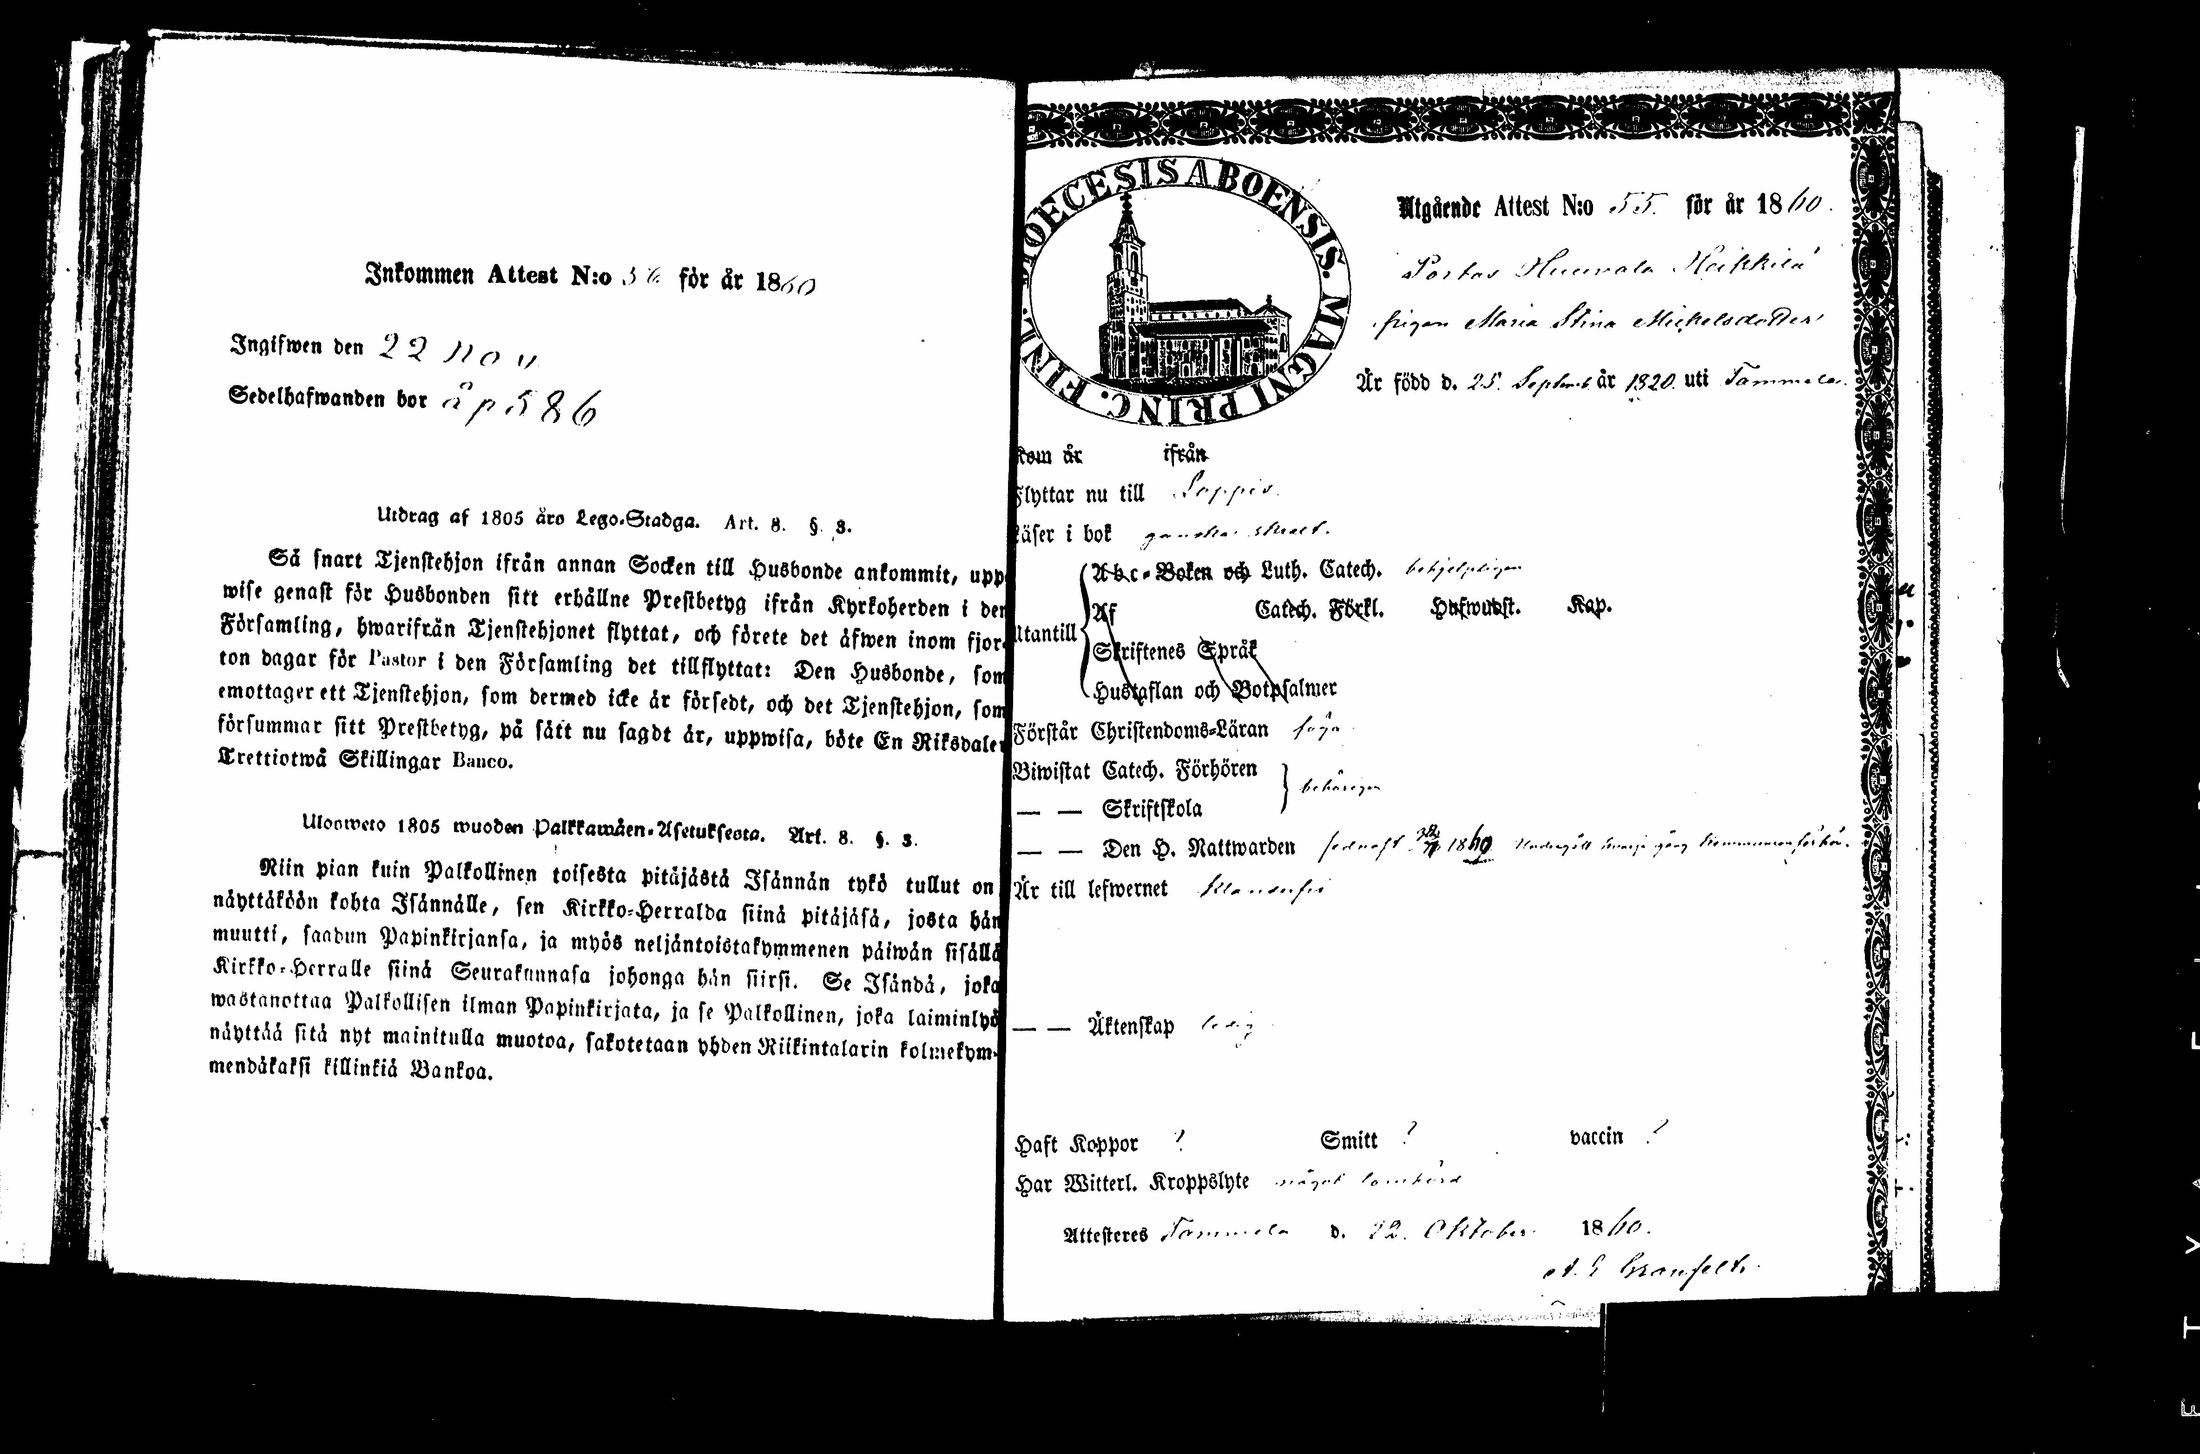 Inkommen Attest N:o 56 för år 1860
Ingifwen den 22 Nov
Sedelhafwanden bor å p 586
Utdrag af 1805 års Lego-Stadga. Art. 8. §. 3.
Så snart Tjenstehjon ifrån annan Socken till Husbonde ankommit, upp-
wise genast för Husbonden sitt erhållne Prestbetyg ifrån Kyrkoherden i den
Församling, hwarifrån Tjenstehjonet flyttat, och förete det äfwen inom fjor-
ton dagar för Pastor i den Församling det tillflyttat: Den Husbonde, som
emottager ett Tjenstehjon, som dermed icke är försedt, och det Tjenstehjon, som
försummar sitt Prestbetyg, på sätt nu sagdt är, uppwisa, böte En Riksdaler
Trettiotwå Skillingar Banco.
Ulosweto 1805 wuoden Palkkawäen-Asetuksesta. Art. 8. §. 3.
Niin pian kuin Palkollinen toisesta pitäjästä Isännän tykö tullut on
näyttäköön kohta Isännälle, sen Kirkko-Herralda siinä pitäjäsä, josta hän
muutti, saadun Papinkirjansa, ja myös neljäntoistakymmenen päiwän sisällä
Kirkko-Herralle siinä Seurakunnasa johonga hän siirsi. Se Isändä, joka
wastanottaa Palkollisen ilman Papinkirjata, ja se Palkollinen, joka laiminlyö
näyttää sitä nyt mainitulla muotoa, sakotetaan yhden Riikintalarin kolmekym-
mendäkaksi killinkiä Bankoa.
DIOECESIS ABOENSIS. MAGNI PRINC. FINL.
Utgående Attest N:o 55. för år 1860.
Portas Huuvala Heikkilä
pigan Maria Stina Michelsdotter
Är född d. 25. Septemb. år 1820. uti Tammela.
Kom år ifrån
Flyttar nu till Loppis.
Läser i bok ganska skralt.
Utantill
Abc-Boken och Luth. Catech. behjelpligen
Af Catech. Förkl. Hufwudst. Kap.
Skriftenes Språk
Hustaflan och Botpsalmer
Förstår Christendoms-Läran föga
Biwistat Catech. Förhören
behörigen
— — Skriftskola
— — Den H. Nattwarden sednast 1860
Är till lefwernet klanderfri
— — Äktenskap ledig
Haft Koppor ? Smitt ? vaccin ?
Har Witterl. Kroppslyte något lomhörd
Attesteres Tammela d. 22. Oktober 1860.
A. F. Granfelt.